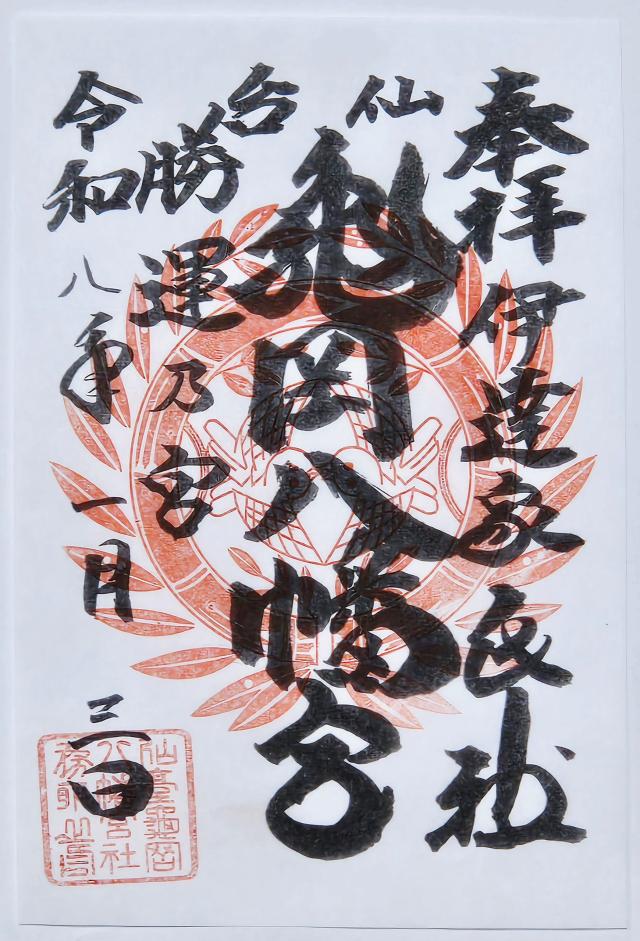 奉拝 伊達家氏社
仙台
亀岡八幡宮
勝運乃宮
令和八年一月三日
仙臺龜岡
八幡宮社
務所之印